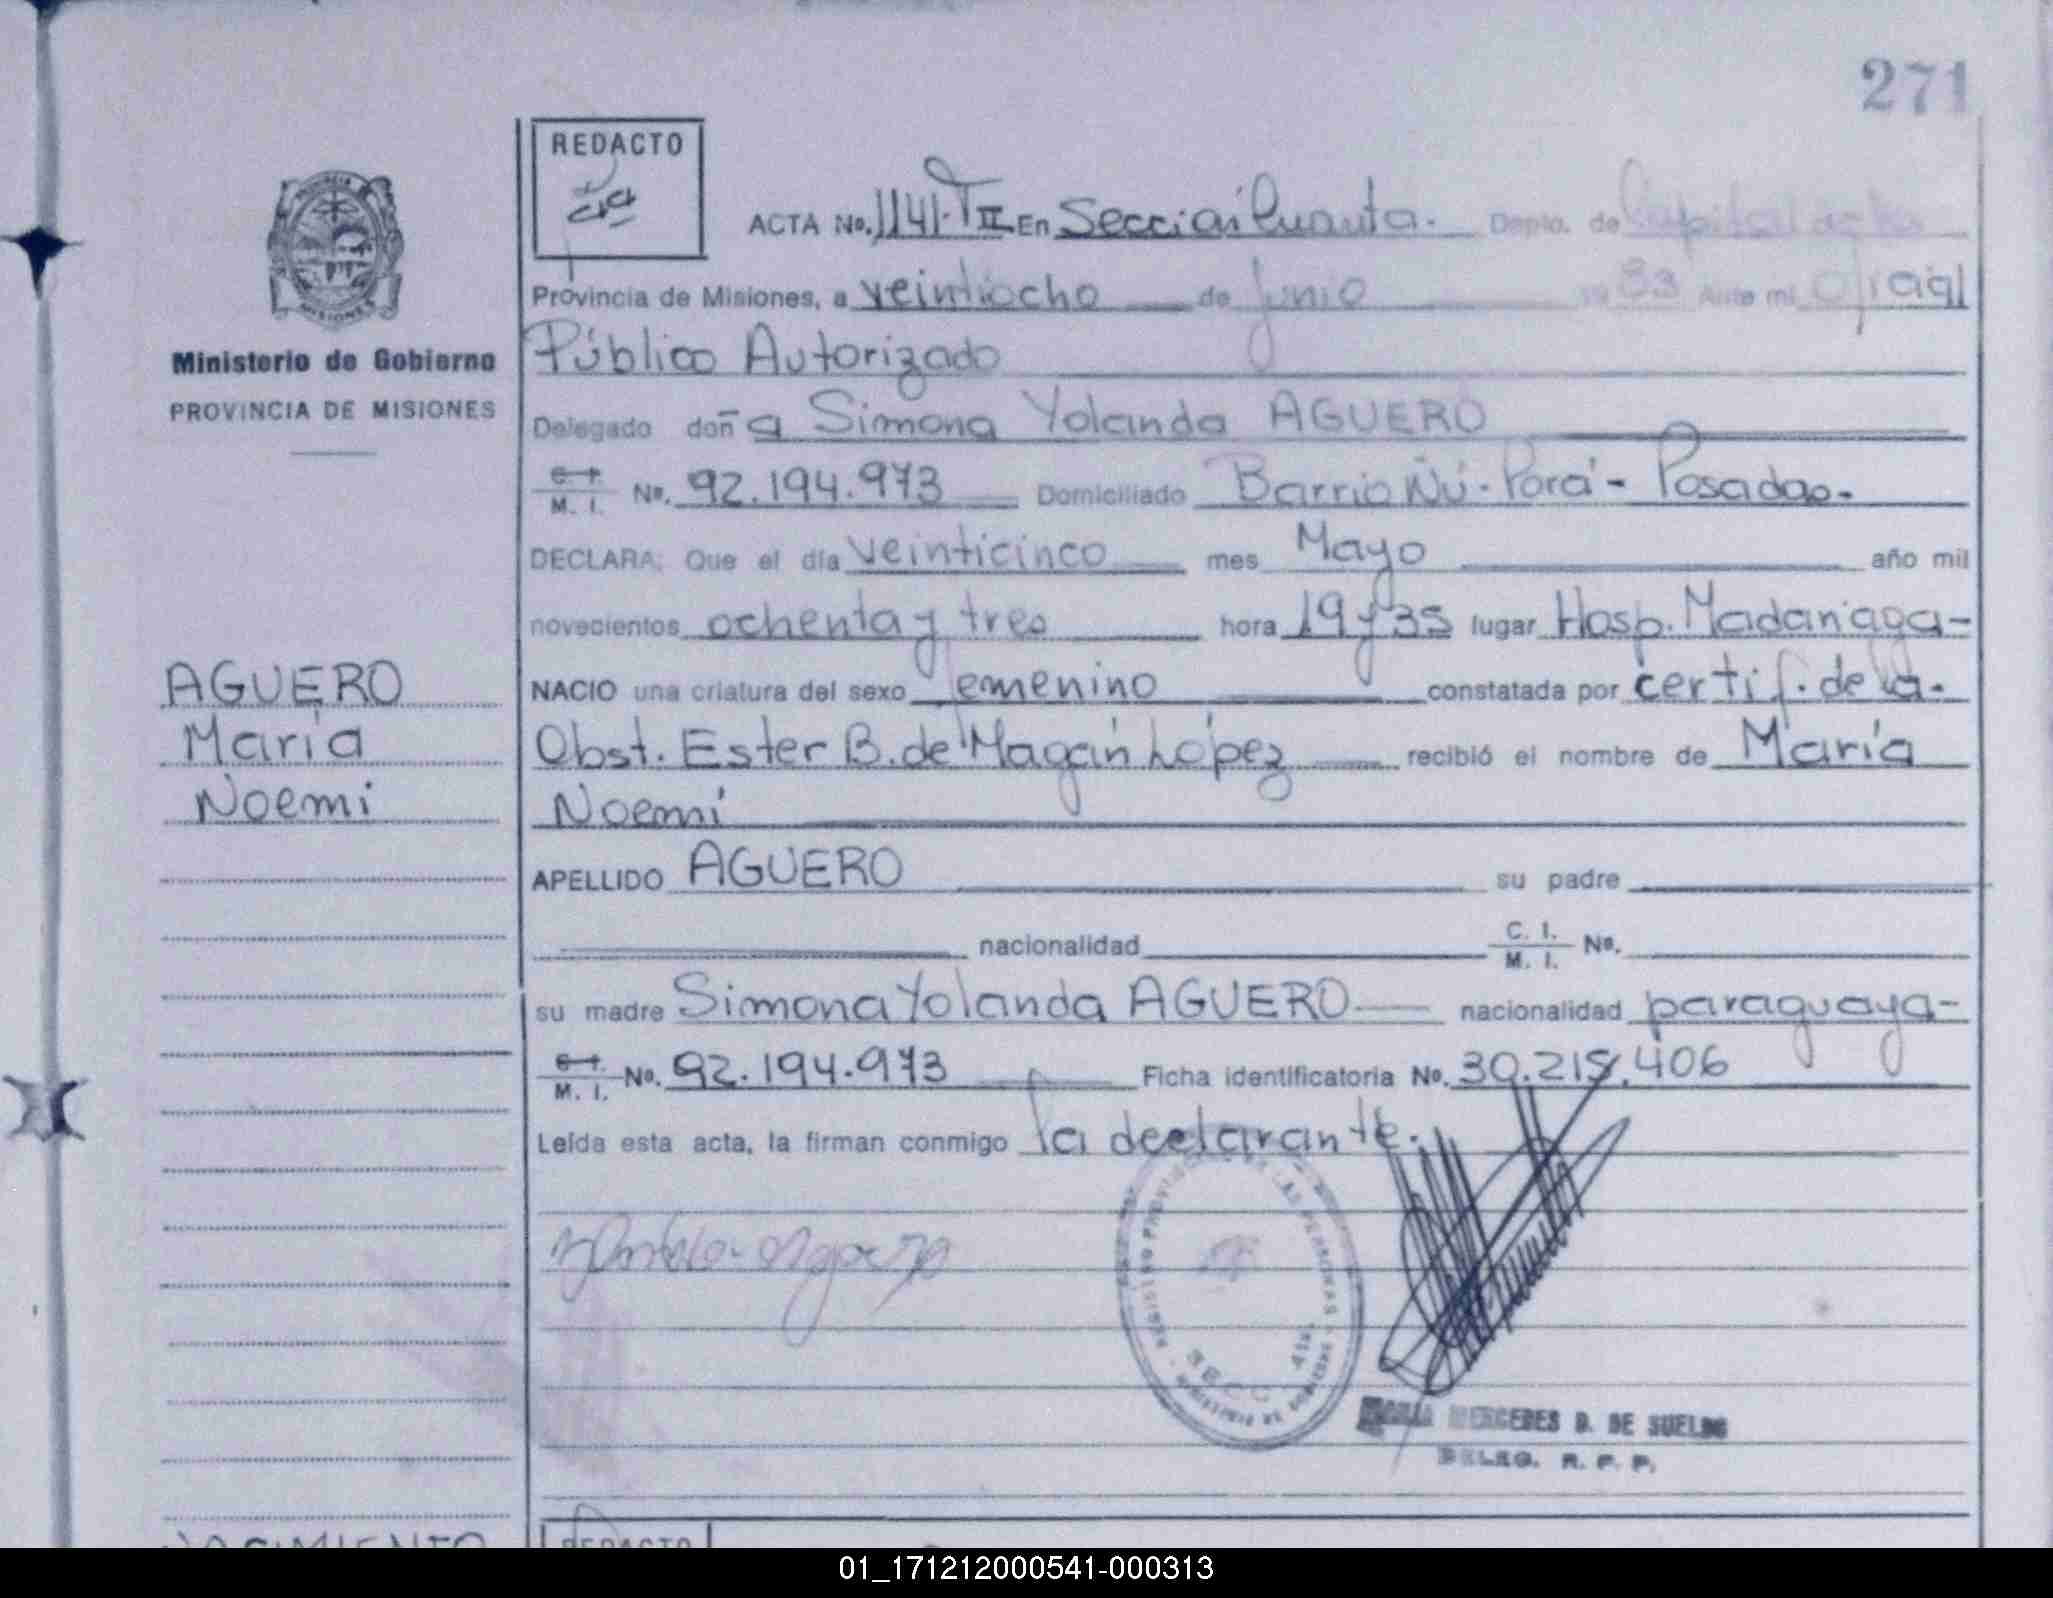 271
REDACTO
ACTA No. 1141-TII En Sección Cuarta. Depto. de Capital de la
Provincia de Misiones, a veintiocho de junio 1983 Ante mi oficial
Público Autorizado
Delegado doña Simona Yolanda AGUERO
C.I. M. I. No. 92.194.973 Domiciliado Barrio Ñú-Porá- Posadas-
DECLARA: Que el día veinticinco mes Mayo año mil
novecientos ochenta y tres hora 19 y 35 lugar Hosp. Madariaga-
NACIO una criatura del sexo femenino constatada por certif. de la.
Obst. Ester B. de Magán López recibió el nombre de María
Noemí
APELLIDO AGUERO su padre
nacionalidad C. I. M. I. No.
su madre Simona Yolanda AGUERO nacionalidad paraguaya-
C.I. M. I. No. 92.194.973 Ficha identificatoria No. 30.215.406
Leída esta acta, la firman conmigo la declarante.
REGISTRO PROVINCIAL DE LAS PERSONAS
SECC. 4ta.
MERCEDES D. DE SUELDO
DELEG. R. P. P.
PROVINCIA
MISIONES
Ministerio de Gobierno
PROVINCIA DE MISIONES
AGUERO
María
Noemi
NACIMIENTO
REDACTO
01_171212000541-000313